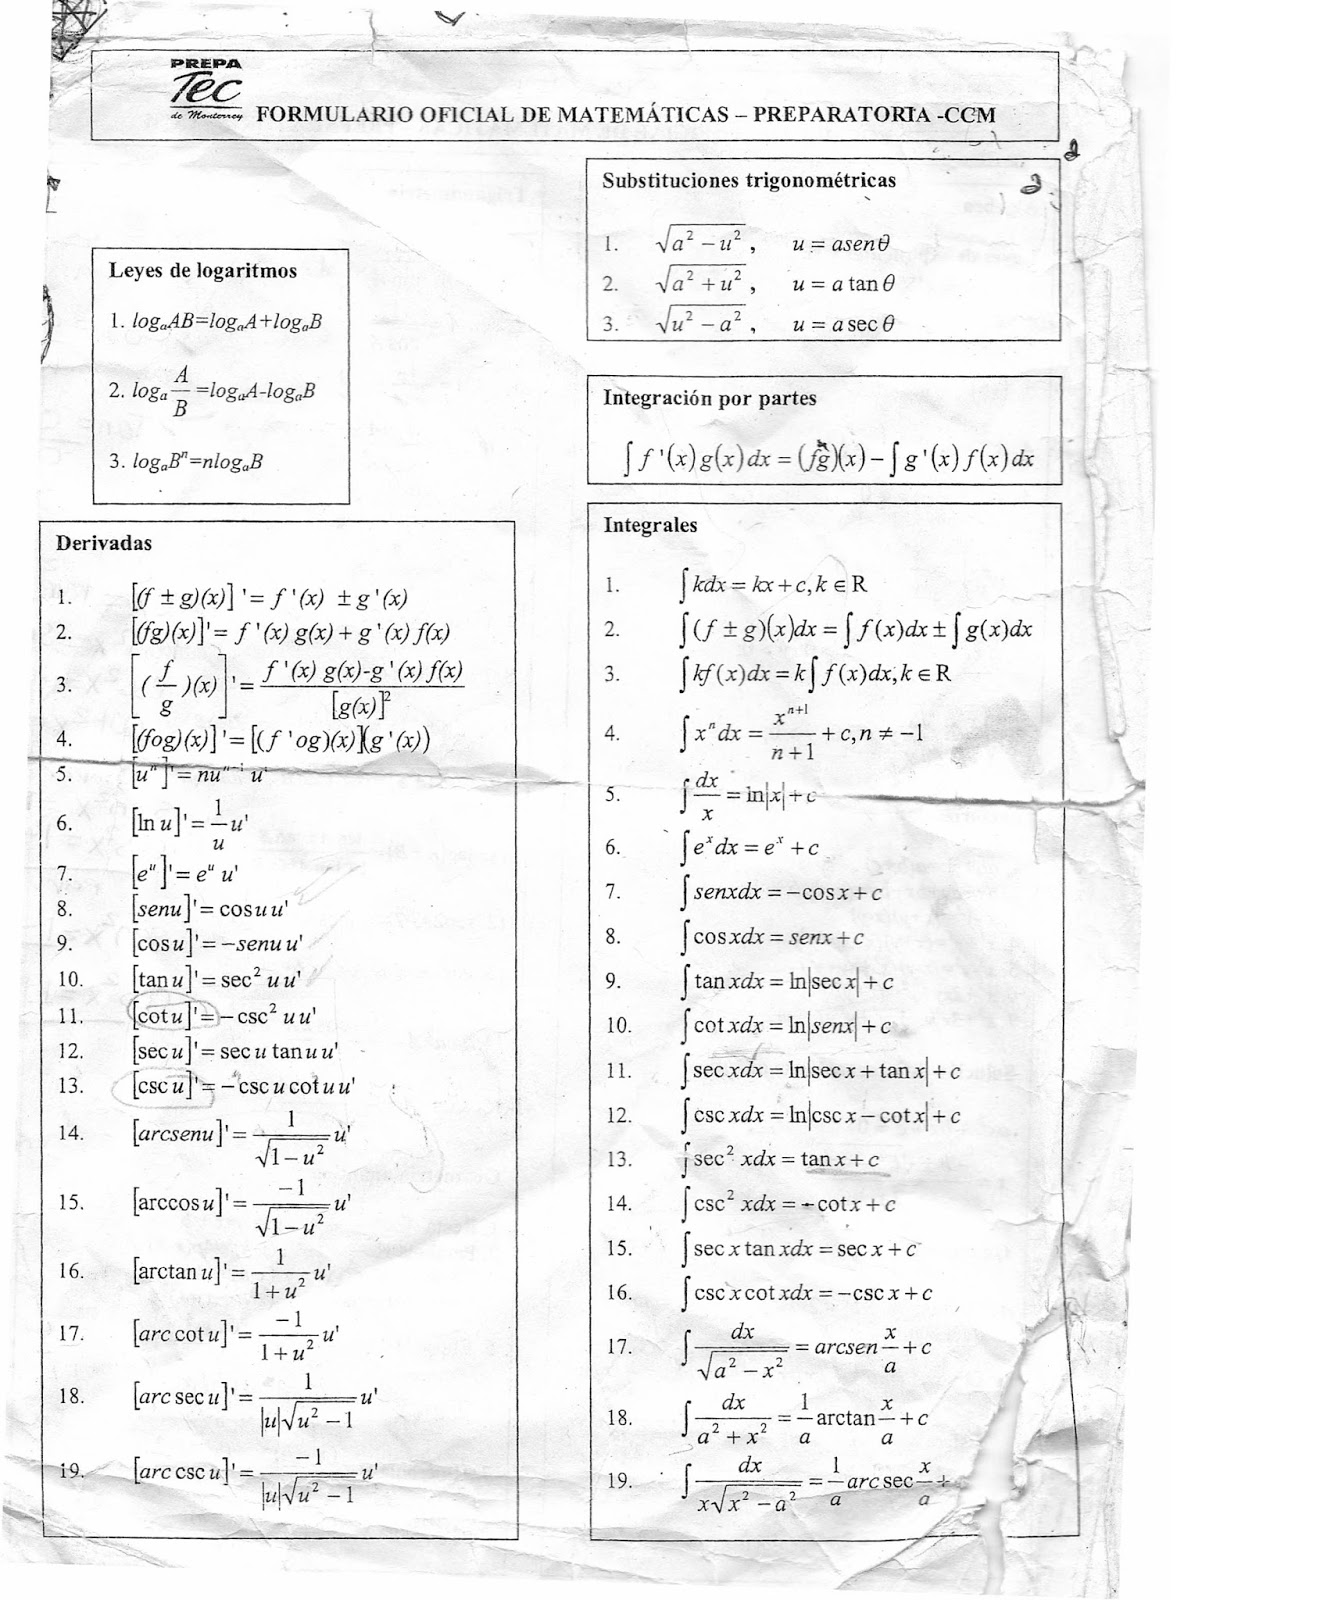 PREPA
Tec
de Monterrey
FORMULARIO OFICIAL DE MATEMÁTICAS – PREPARATORIA -CCM
Leyes de logaritmos
1. logₐAB=logₐA+logₐB
2. logₐ A/B =logₐA-logₐB
3. logₐBⁿ=nlogₐB
Substituciones trigonométricas
1. √(a² − u²) , u = asenθ
2. √(a² + u²) , u = a tan θ
3. √(u² − a²) , u = a sec θ
Integración por partes
∫ f '(x) g(x) dx = (fg)(x) − ∫ g '(x) f(x) dx
Derivadas
1. [(f ± g)(x)] '= f '(x) ± g '(x)
2. [(fg)(x)]'= f '(x) g(x) + g '(x) f(x)
3. [(f/g)(x)]'= (f '(x) g(x)-g '(x) f(x))/[g(x)]²
4. [(fog)(x)]'= [(f 'og)(x)](g '(x))
5. [uⁿ]'= nuⁿ⁻¹ u'
6. [ln u]'= 1/u u'
7. [eᵘ]'= eᵘ u'
8. [senu]'= cos u u'
9. [cos u]'= −senu u'
10. [tan u]'= sec² u u'
11. [cot u]'= − csc² u u'
12. [sec u]'= sec u tan u u'
13. [csc u]'= − csc u cot u u'
14. [arcsenu]'= 1/√(1−u²) u'
15. [arccos u]'= −1/√(1−u²) u'
16. [arctan u]'= 1/(1+u²) u'
17. [arc cot u]'= −1/(1+u²) u'
18. [arc sec u]'= 1/(|u|√(u² − 1)) u'
19. [arc csc u]'= −1/(|u|√(u² − 1)) u'
Integrales
1. ∫ kdx = kx + c, k ∈ R
2. ∫ (f ± g)(x)dx = ∫ f(x)dx ± ∫ g(x)dx
3. ∫ kf(x)dx = k∫ f(x)dx, k ∈ R
4. ∫ xⁿdx = xⁿ⁺¹/(n+1) + c, n ≠ −1
5. ∫ dx/x = ln|x| + c
6. ∫ eˣdx = eˣ + c
7. ∫ senxdx = −cos x + c
8. ∫ cos xdx = senx + c
9. ∫ tan xdx = ln|sec x| + c
10. ∫ cot xdx = ln|senx| + c
11. ∫ sec xdx = ln|sec x + tan x| + c
12. ∫ csc xdx = ln|csc x − cot x| + c
13. ∫ sec² xdx = tan x + c
14. ∫ csc² xdx = −cot x + c
15. ∫ sec x tan xdx = sec x + c
16. ∫ csc x cot xdx = −csc x + c
17. ∫ dx/√(a² − x²) = arcsen x/a + c
18. ∫ dx/(a² + x²) = 1/a arctan x/a + c
19. ∫ dx/(x√(x² − a²)) = 1/a arc sec x/a +